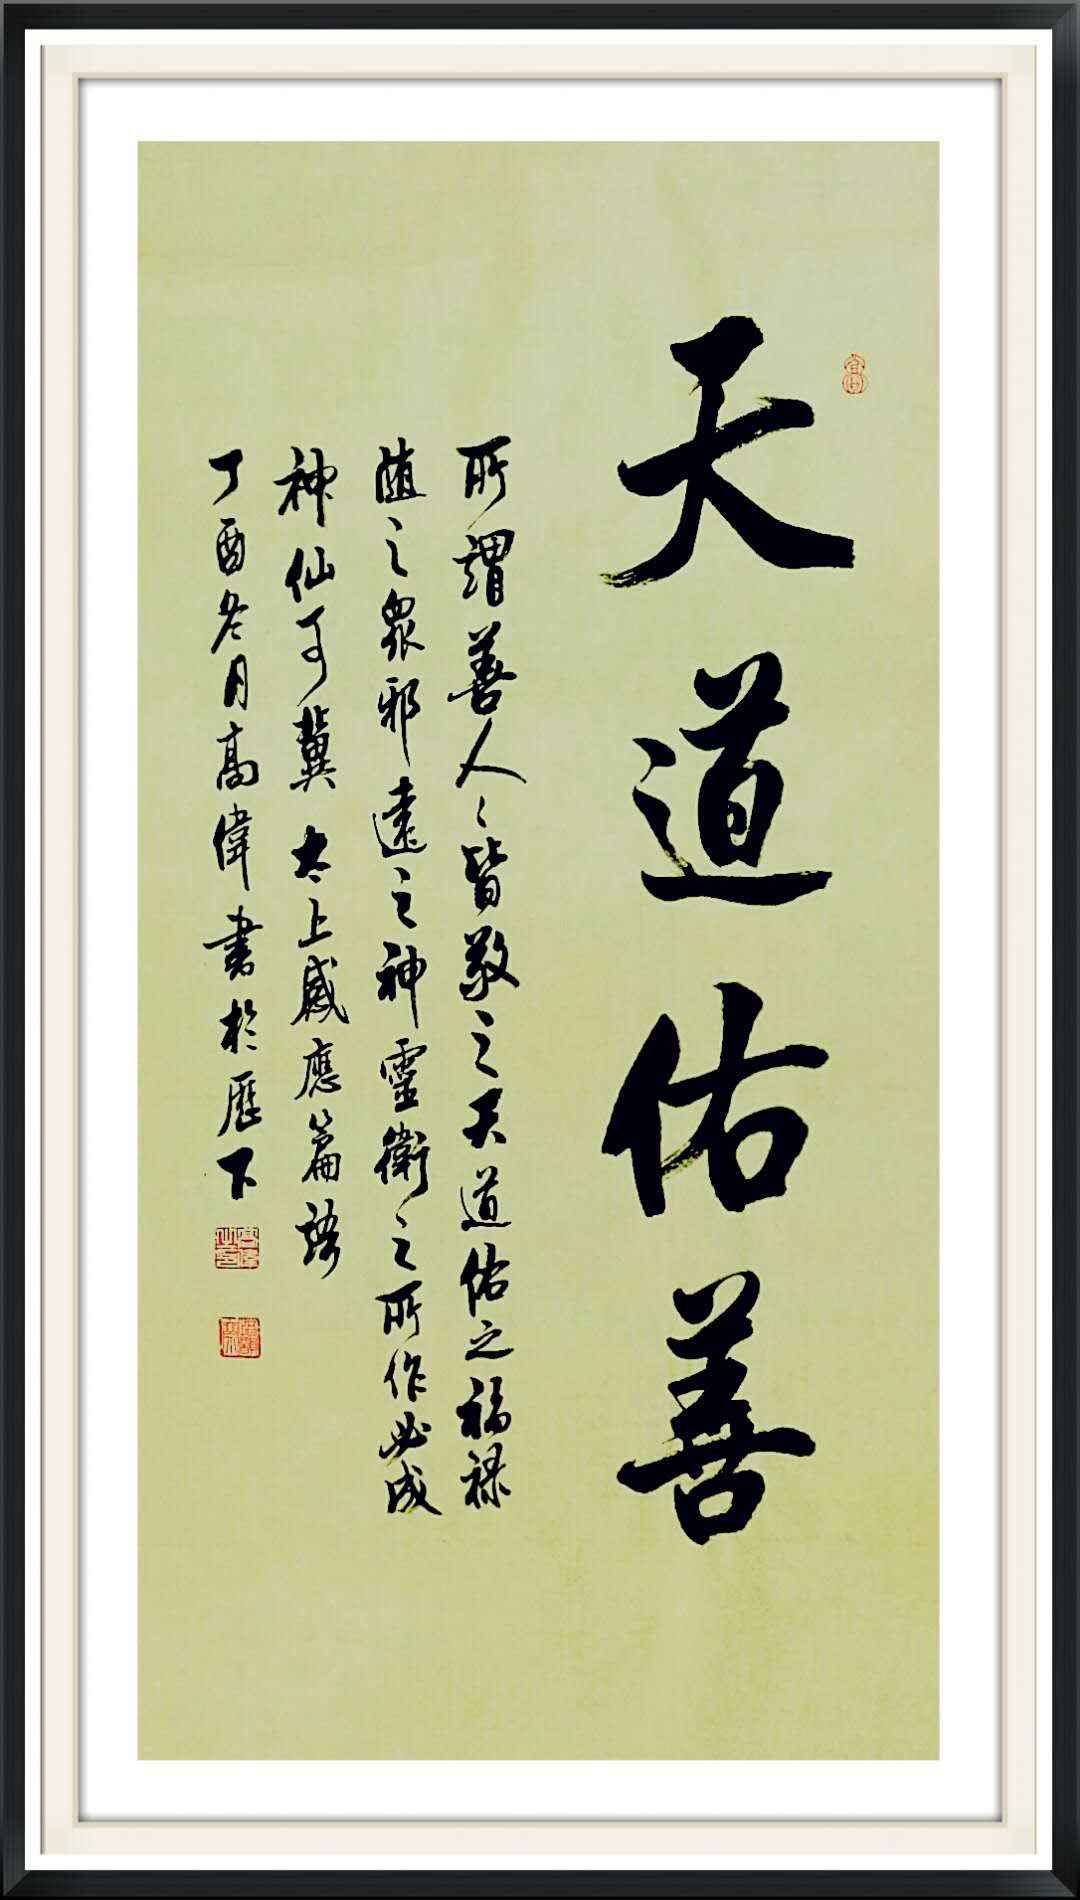 天道佑善
所謂善人人皆敬之天道佑之福禄
随之衆邪遠之神靈衛之所作必成
神仙可冀 太上感應篇語
丁酉冬月高偉書於歷下